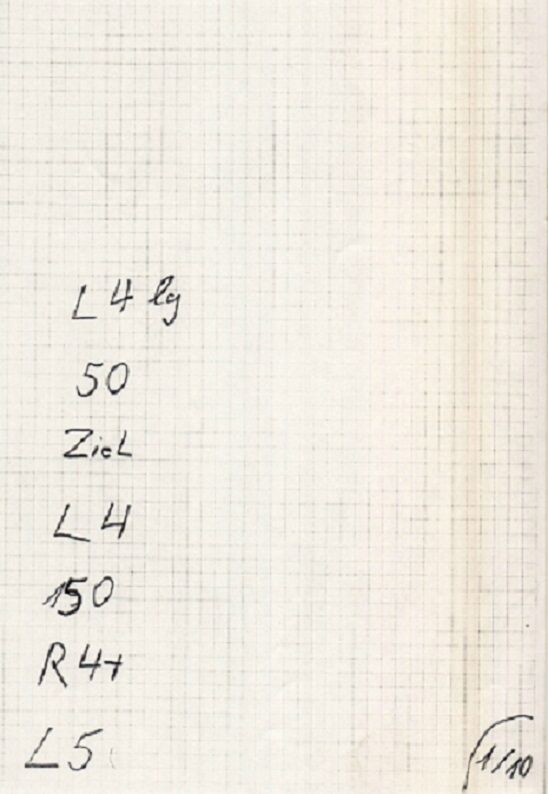 L 4 lg
50
Ziel
L 4
150
R 4+
L 5
1/10